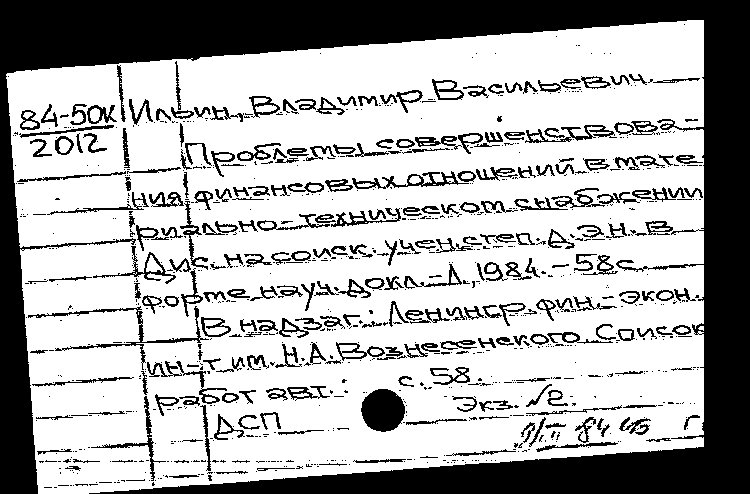 84-50к Ильин, Владимир Васильевич.
2012
Проблемы совершенствова-
ния финансовых отношений в мате-
риально-техническом снабжении
Дис. на соиск. учен. степ. д.э.н. в
форме науч. докл. -Л., 1984. - 58с.
В надзаг.: Ленингр. фин.-экон.
ин-т им. Н.А. Вознесенского. Список
работ авт.: с. 58.
Экз. №2.
ДСП